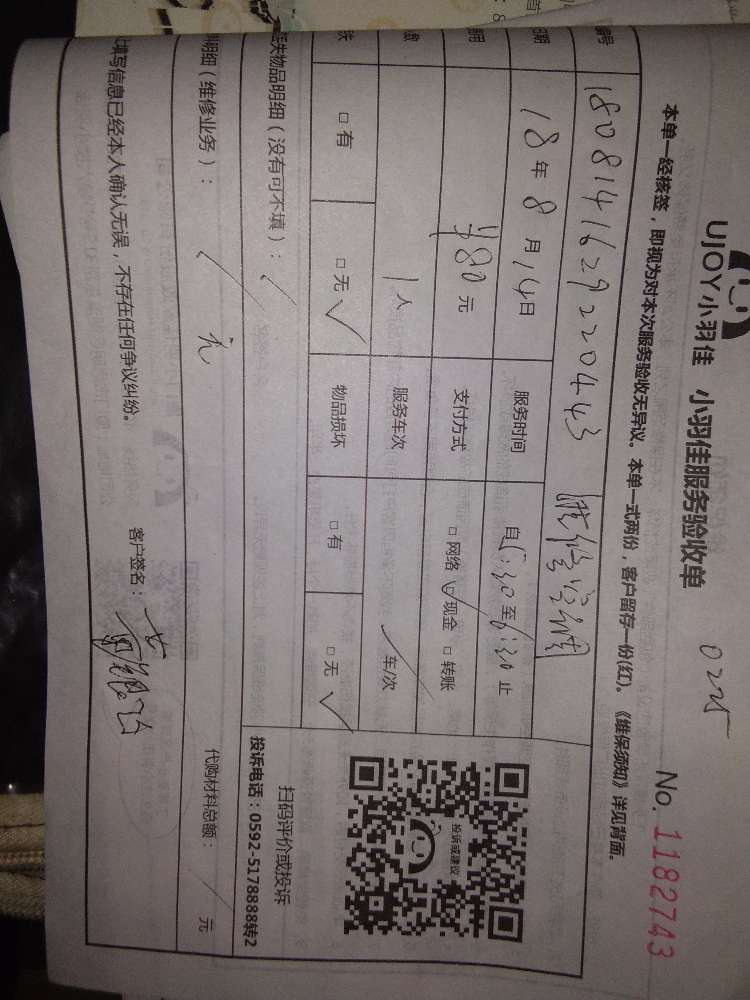 UJOY小羽佳 小羽佳服务验收单
0225
No. 1182743
本单一经核签，即视为对本次服务验收无异议。本单一式两份，客户留存一份(红)。《维保须知》详见背面。
编号 180814162922044 维修空调
日期 18年8月14日 服务时间 自5:30至6:30止
用 ¥80元 支付方式 □网络 ☑现金 □转账
数 1人 服务车次 / 车/次
失 □有 □无 √ 物品损坏 □有 □无 √
丢失物品明细（没有可不填）： /
料明细（维修业务）： / 元
代购材料总额： / 元
填写信息已经本人确认无误，不存在任何争议纠纷。 客户签名：
投诉或建议
扫码评价或投诉
投诉电话：0592-5178888转2